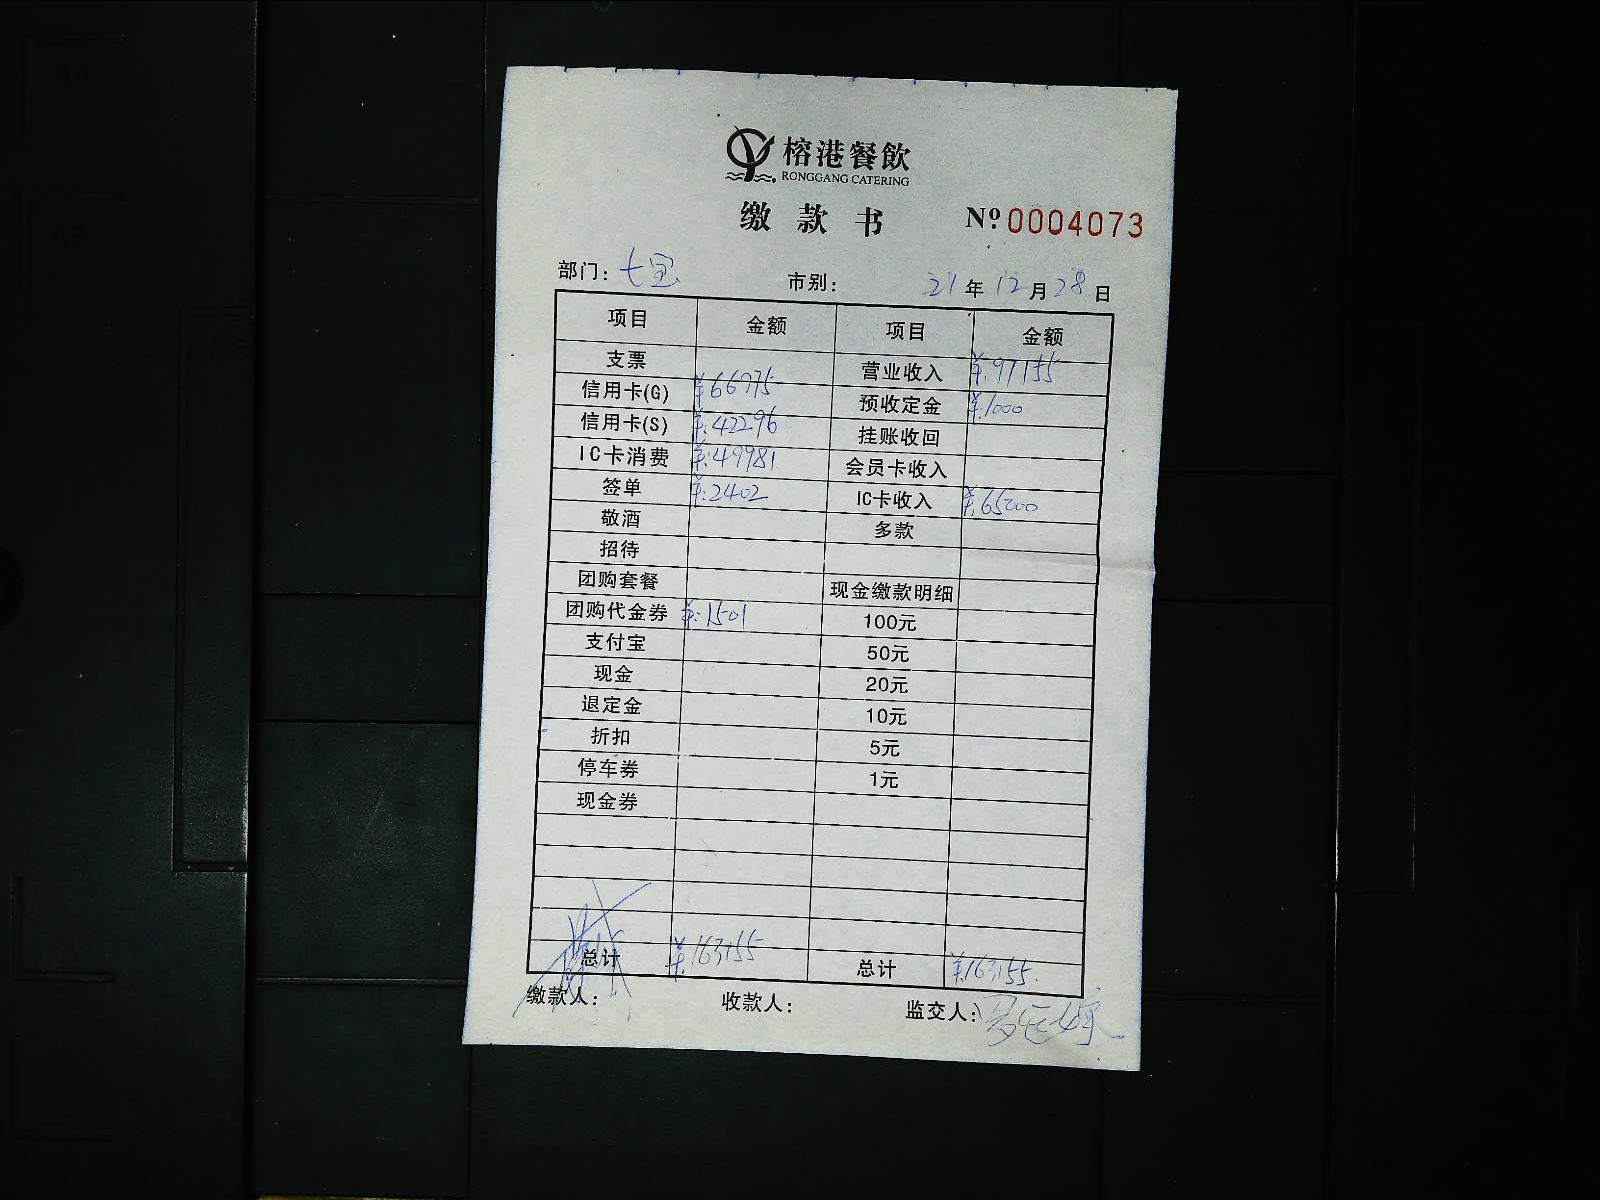 榕港餐飲
RONGGANG CATERING
缴款书 Nº.0004073
部门：七宝 市别： 21年12月28日
项目 金额 项目 金额
支票 营业收入 ¥:97155
信用卡(G) ¥66975 预收定金 ¥:1000
信用卡(S) ¥:42296 挂账收回
IC卡消费 ¥:49981 会员卡收入
签单 ¥:2402 IC卡收入 ¥:65000
敬酒 多款
招待
团购套餐 现金缴款明细
团购代金券 ¥:1501 100元
支付宝 50元
现金 20元
退定金 10元
折扣 5元
停车券 1元
现金券
总计 ¥:163155 总计 ¥163155.
缴款人： 收款人： 监交人：